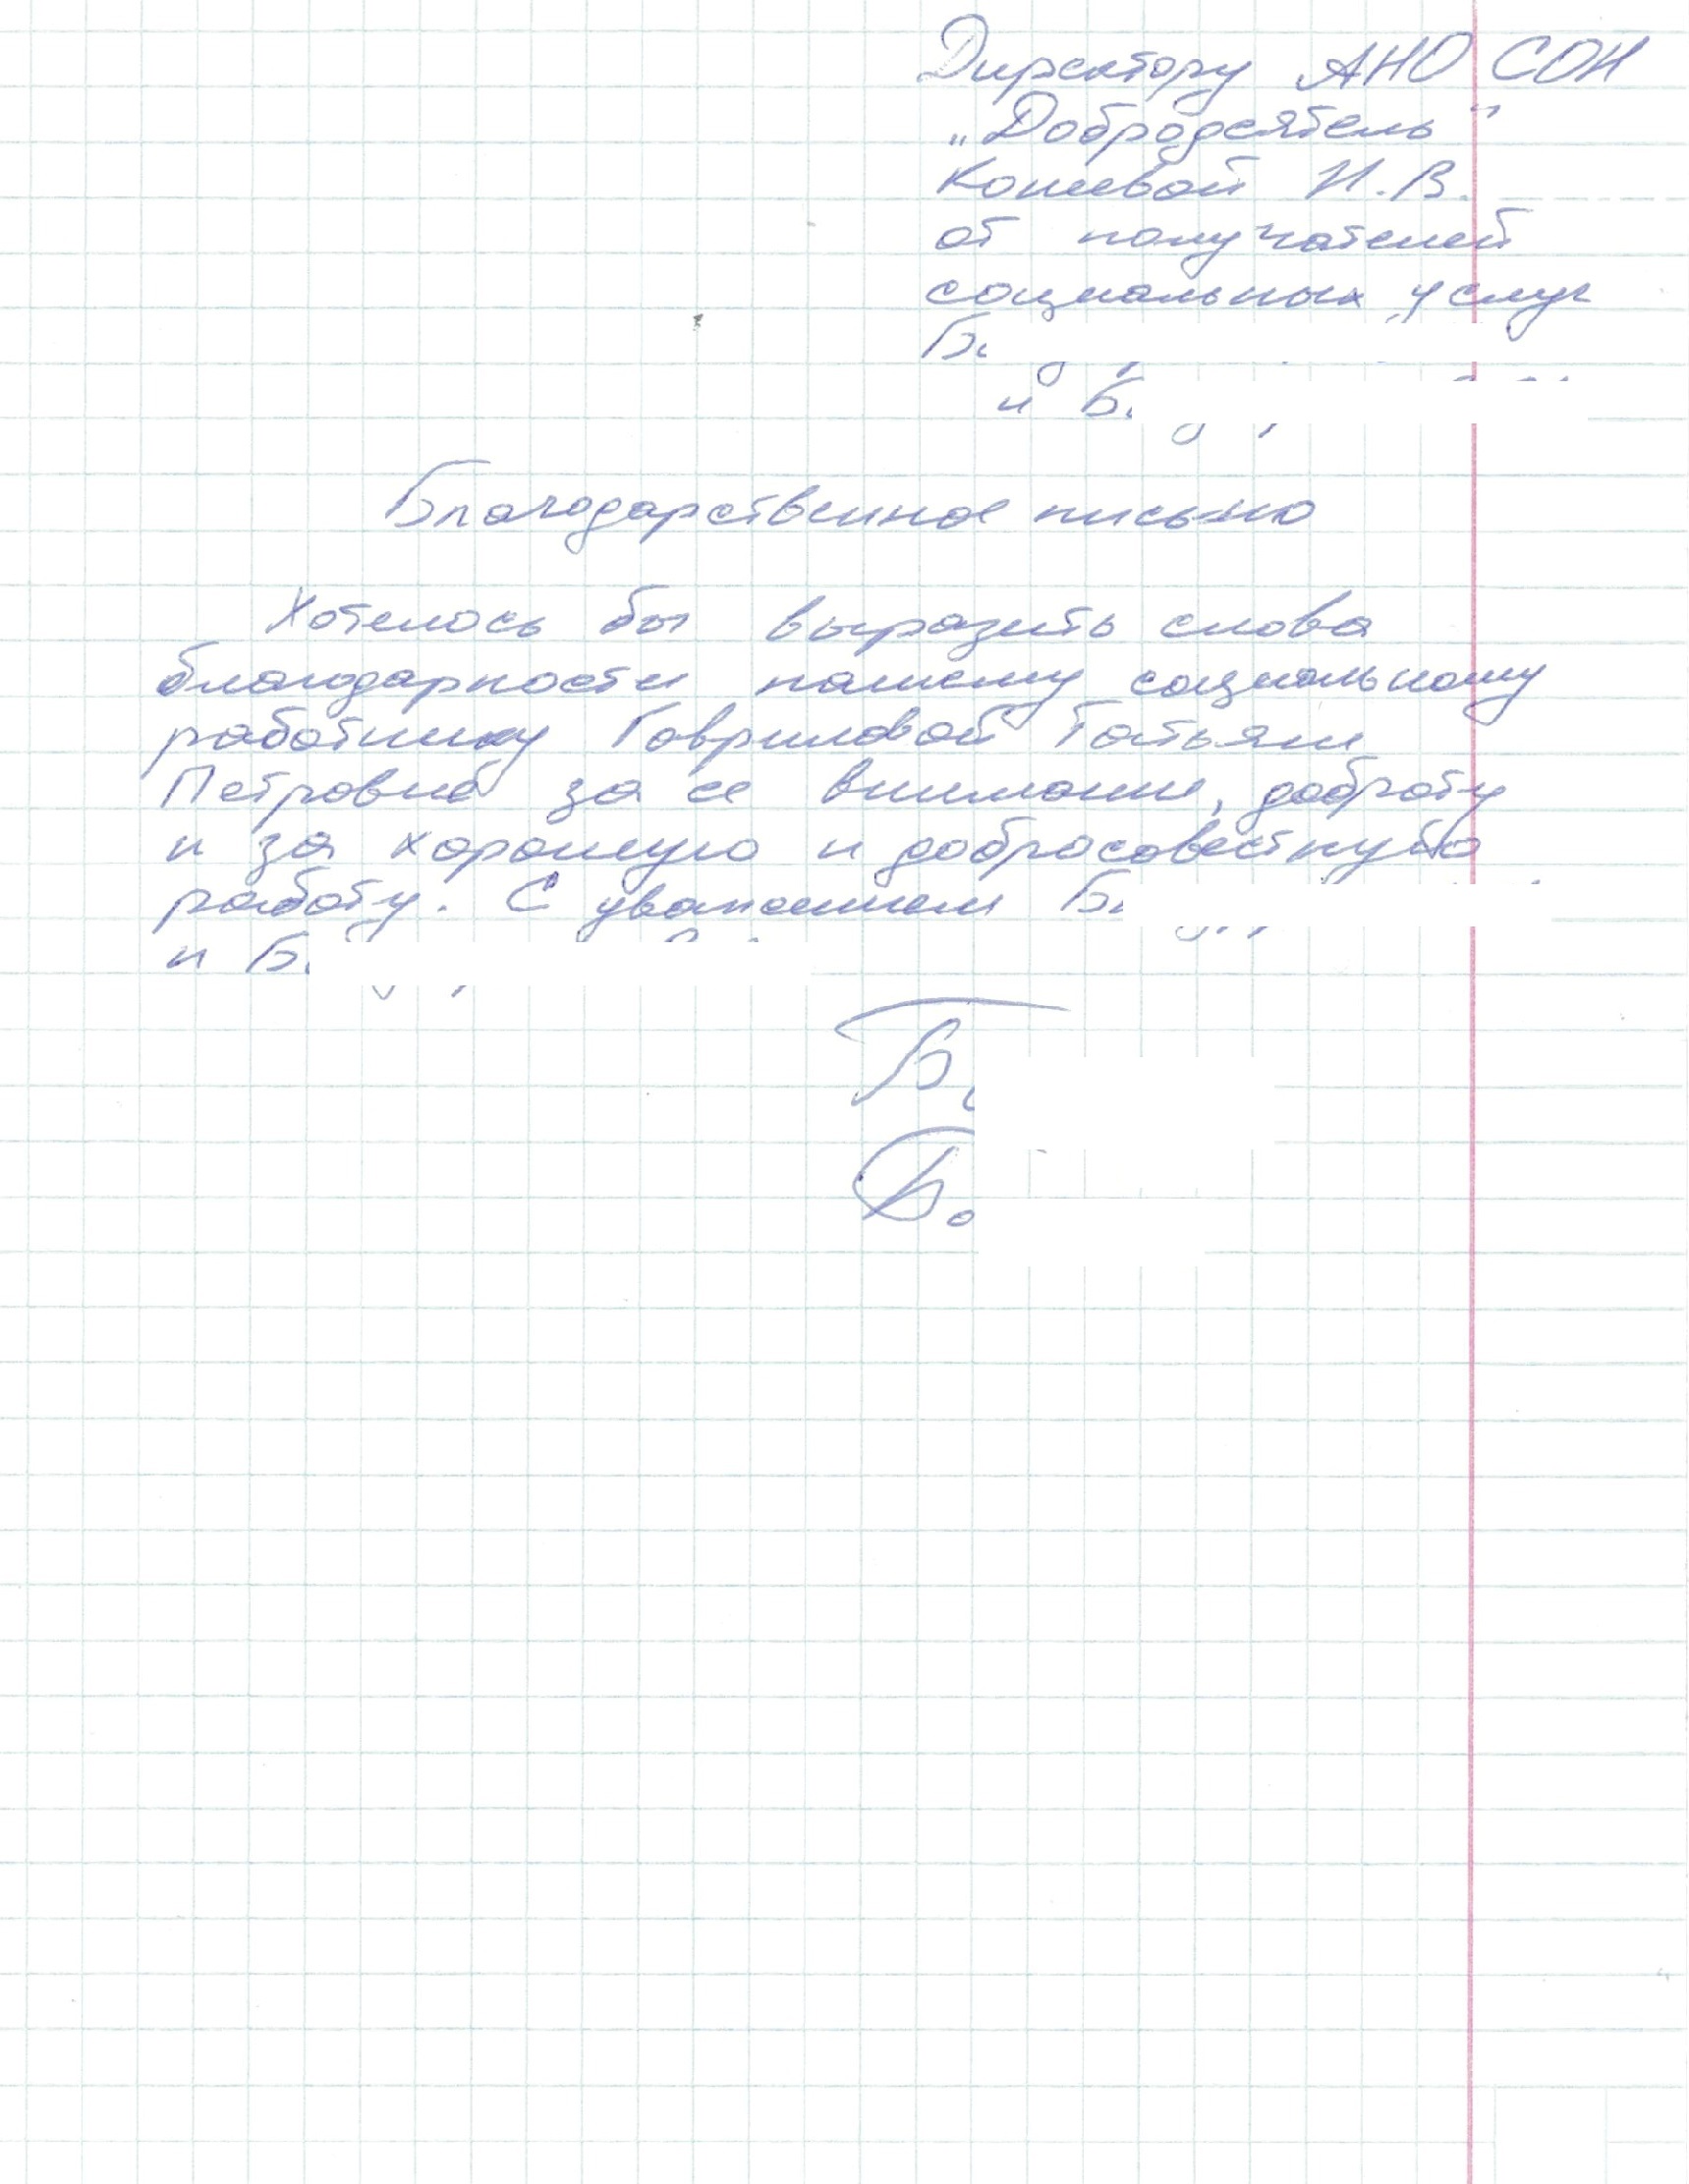 Директору АНО СОН
„Добродеятель"
Кошевой И.В.
от получателей
социальных услуг
Б
и Б
Благодарственное письмо
Хотелось бы выразить слова
благодарности нашему социальному
работнику Гавриловой Татьяне
Петровне за ее внимание, доброту
и за хорошую и добросовестную
работу. С уважением Б
и Б
Б